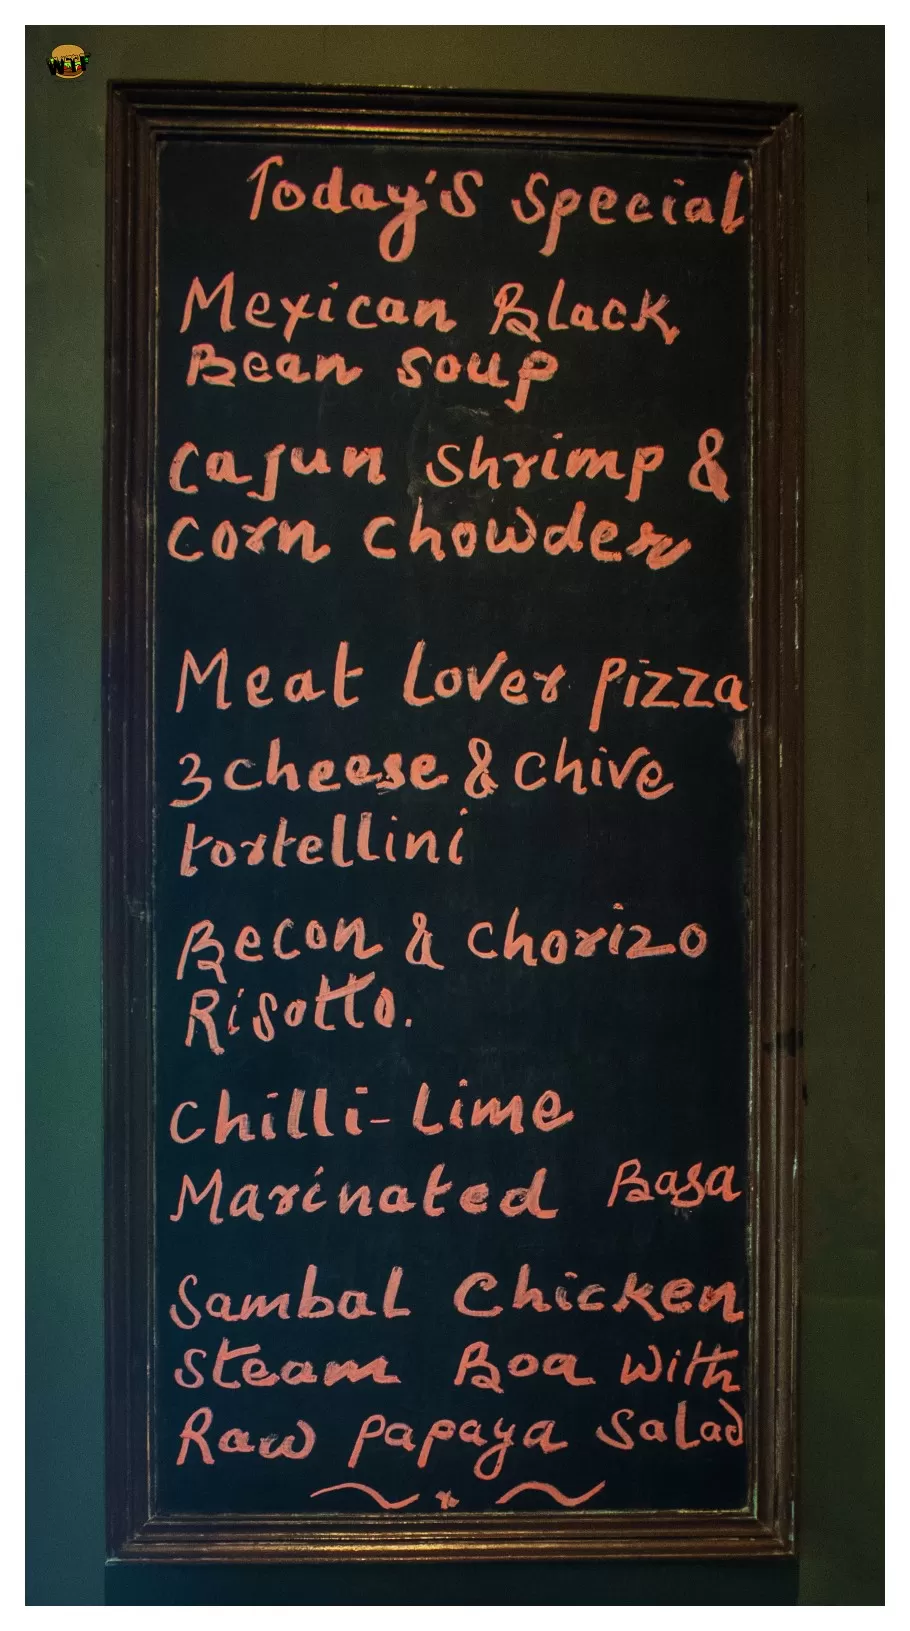 WTF
Today's Special
Mexican Black
Bean soup
Cajun Shrimp &
Corn Chowder
Meat Lover Pizza
3 cheese & chive
tortellini
Becon & Chorizo
Risotto.
Chilli-Lime
Marinated Basa
Sambal Chicken
Steam Boa with
Raw papaya Salad